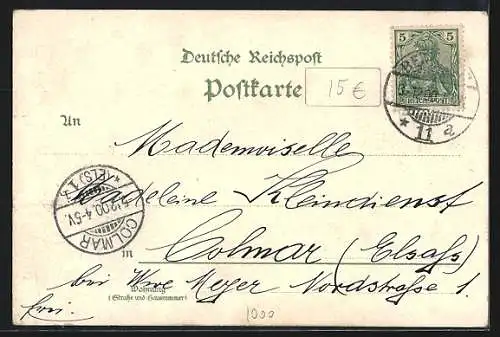 Deutsche Reichspost
Postkarte
15 €
5 5
REICHSPOST
* 11 a
An
Mademoiselle
Madeleine Kleindienst
in Colmar (Elsass)
bei Wwe Meyer Nordstraße 1
Wohnung
(Straße und Hausnummer)
frei.
* (ELS) 1 *
12.00. 4-5V.
COLMAR
1900